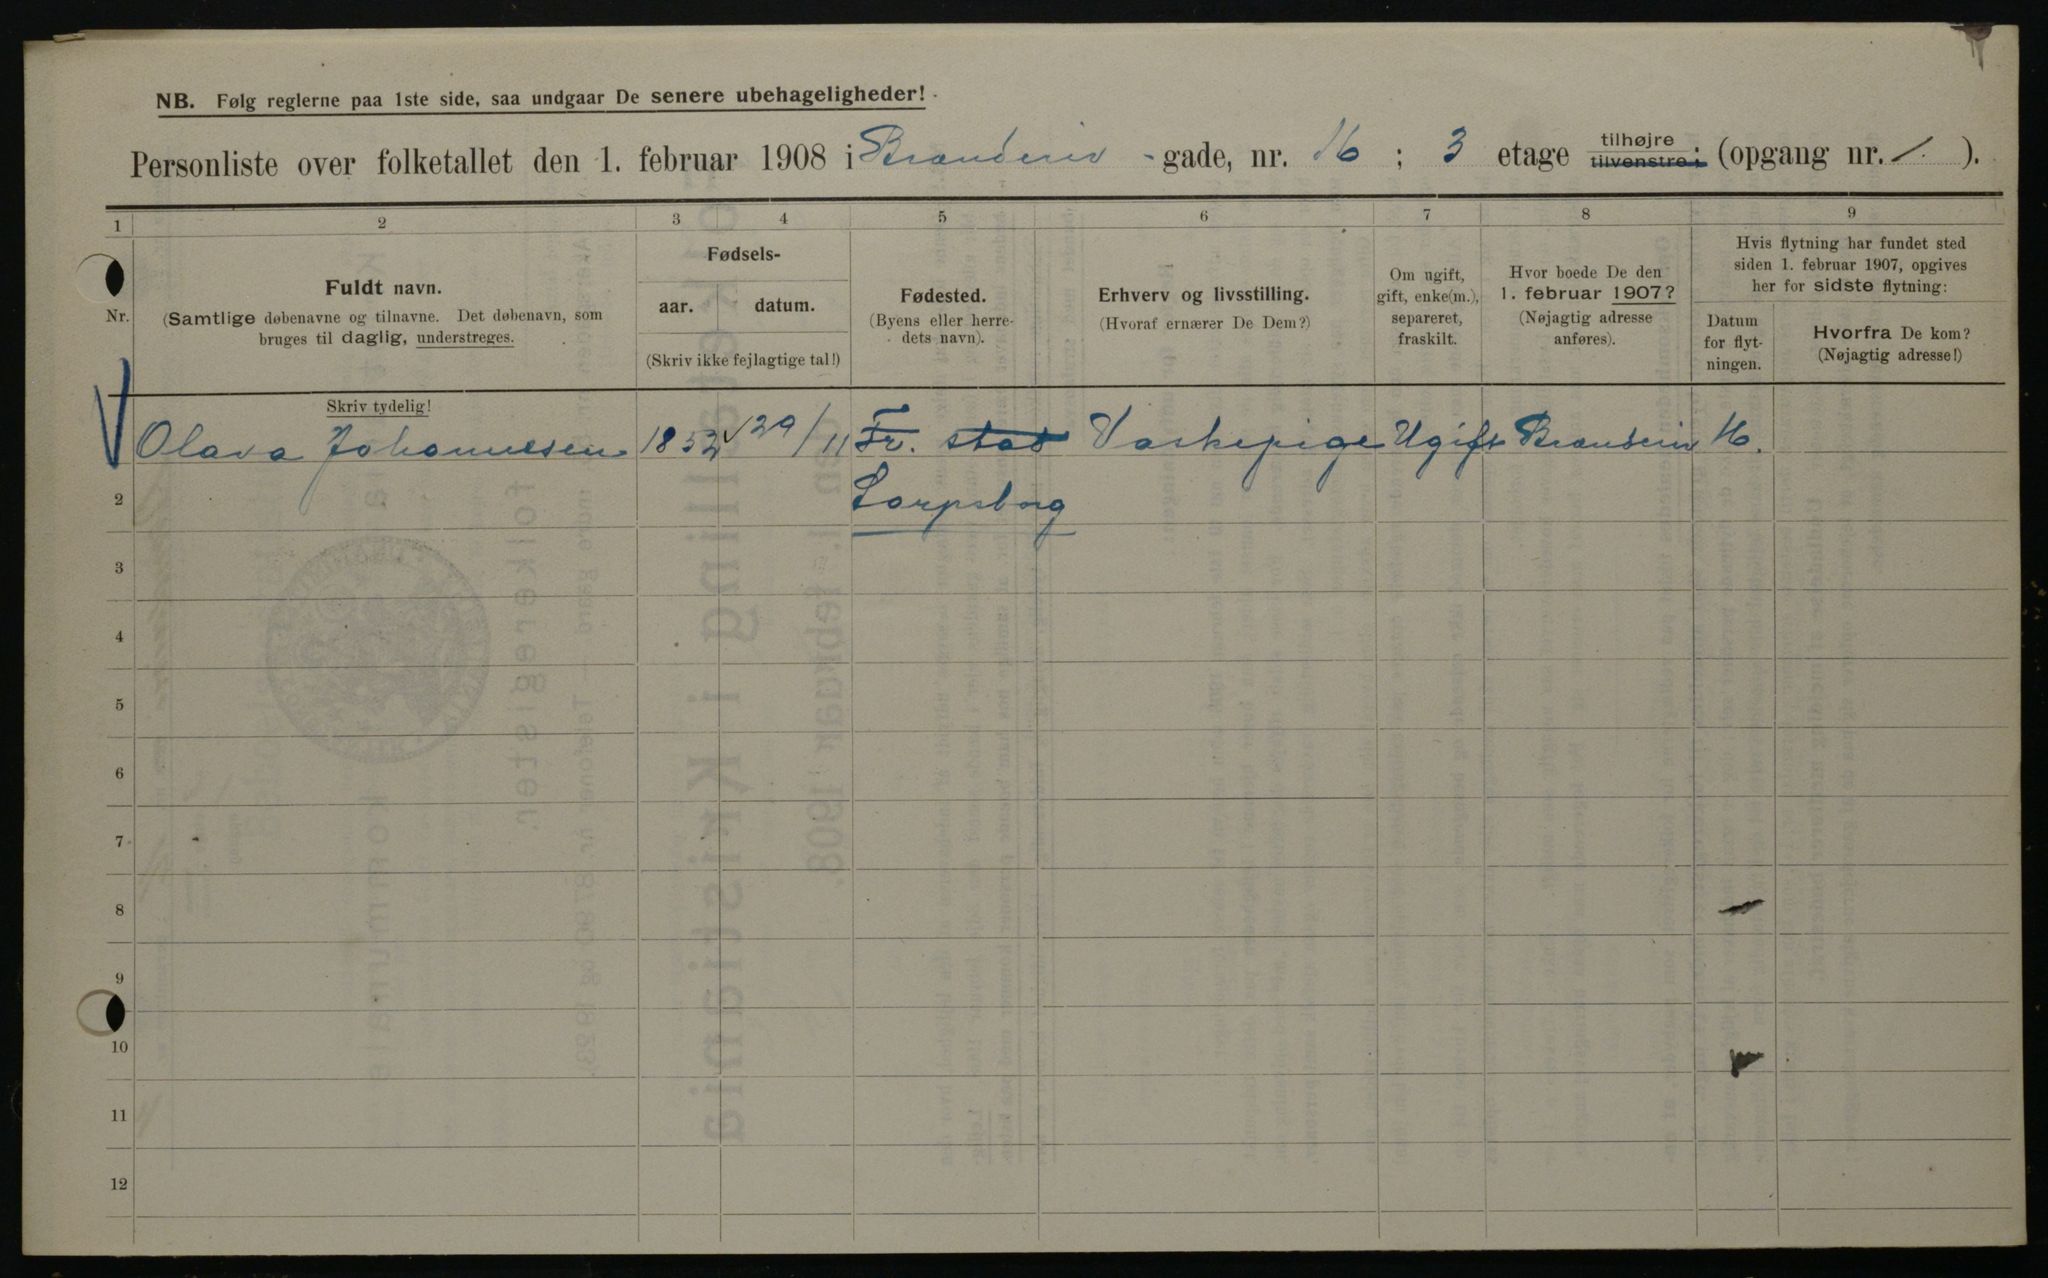 NB. Følg reglerne paa 1ste side, saa undgaar De senere ubehageligheder!
Personliste over folketallet den 1. februar 1908 i Brænderiv -gade, nr. 16 ; 3 etage tilhøjre tilvenstre; (opgang nr. 1. ).
1 2 3 4 5 6 7 8 9
Nr.
Fuldt navn.
(Samtlige døbenavne og tilnavne. Det døbenavn, som
bruges til daglig, understreges.
Skriv tydelig!
Fødsels-
aar. datum.
(Skriv ikke fejlagtige tal!)
Fødested.
(Byens eller herre-
dets navn).
Erhverv og livsstilling.
(Hvoraf ernærer De Dem?)
Om ugift,
gift, enke(m.),
separeret,
fraskilt.
Hvor boede De den
1. februar 1907?
(Nøjagtig adresse
anføres).
Hvis flytning har fundet sted
siden 1. februar 1907, opgives
her for sidste flytning:
Datum
for flyt-
ningen.
Hvorfra De kom?
(Nøjagtig adresse!)
Olava Johannessen 1852 29/11 Fr. stad Vaskepige Ugift Brænderiv 16.
2 Sarpsborg
3
4
5
6
7
8
9
10
11
12